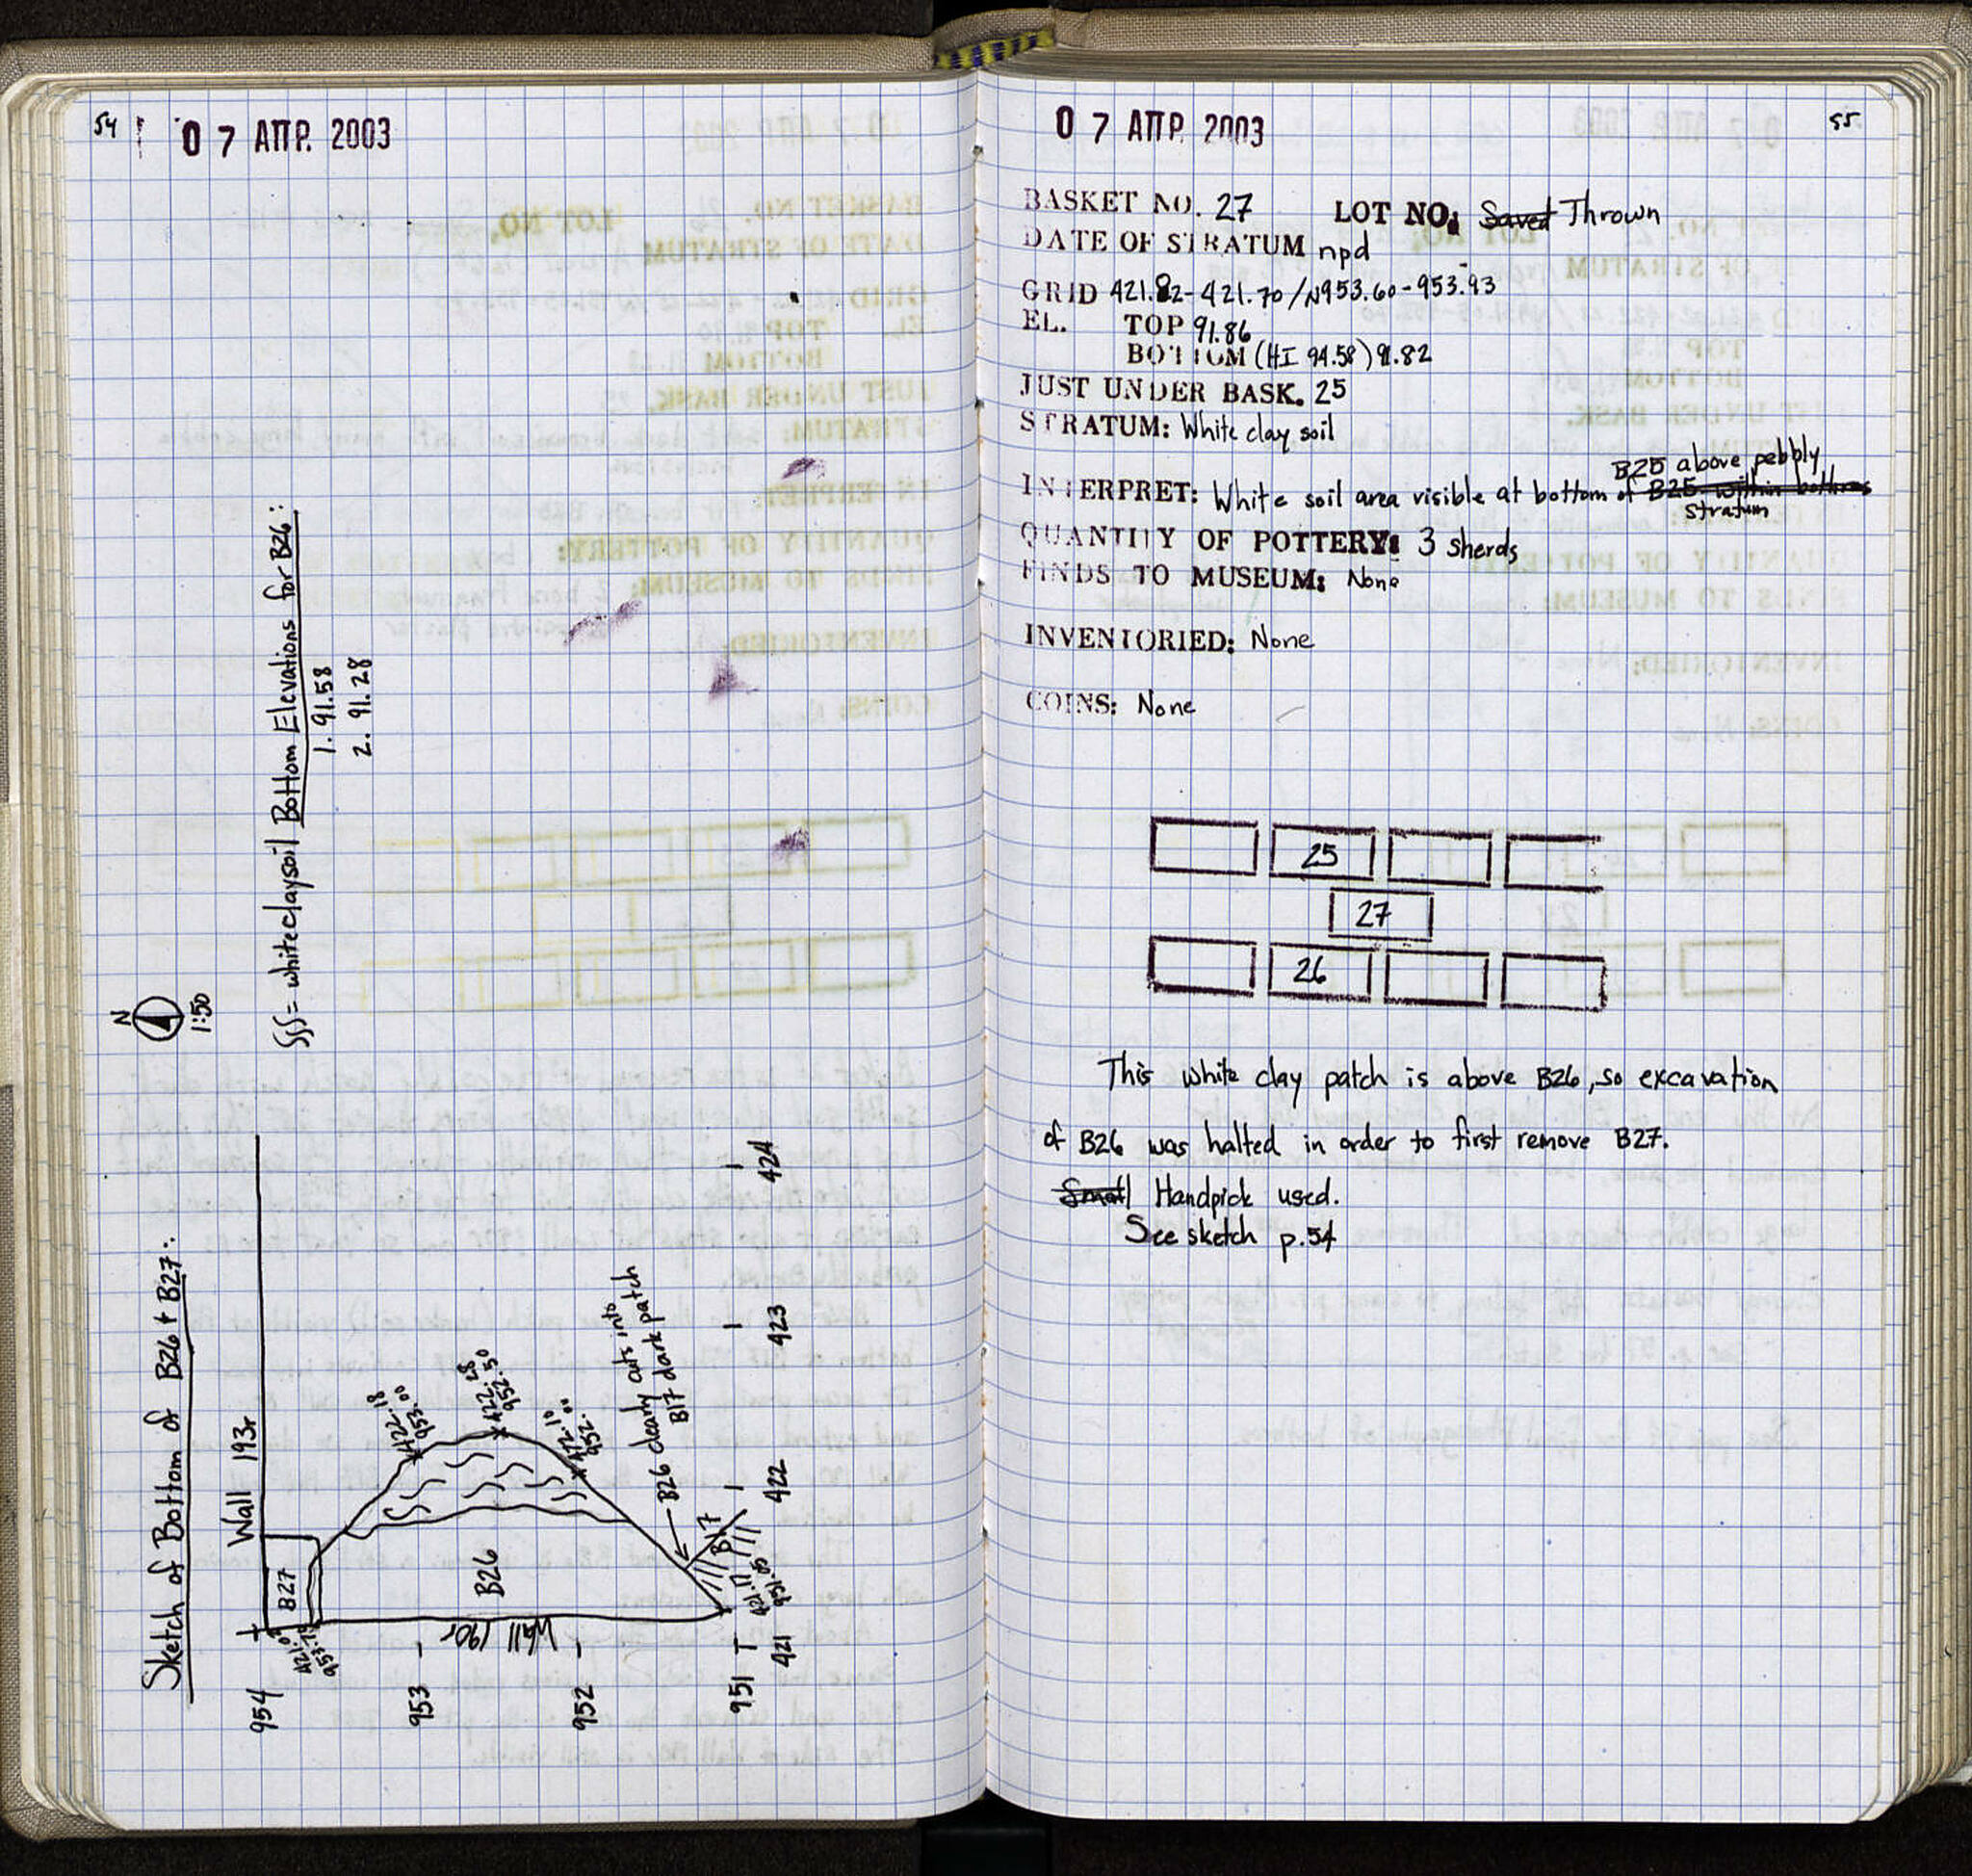 54
07 ΑΠΡ. 2003
Sketch of Bottom of B26 + B27:
N
1:50
∫∫∫ = white clay soil
Bottom Elevations for B26:
1. 91.58
2. 91.28
Wall 193r
B27
B26
Wall 190r
B17
422.18
953.00
422.28
952.50
422.10
952.00
B26 clearly cuts into
B17 dark patch
421.17
951.05
954
953
952
951
421
422
423
424
07 ΑΠΡ. 2003
55
BASKET NO. 27 LOT NO. Saved Thrown
DATE OF STRATUM npd
GRID 421.82-421.70/N953.60-953.93
EL. TOP 91.86
BOTTOM (HI 94.58) 91.82
JUST UNDER BASK. 25
STRATUM: White clay soil
B25 above pebbly
INTERPRET: White soil area visible at bottom of B25 within bottoms
stratum
QUANTITY OF POTTERY: 3 sherds
FINDS TO MUSEUM: None
INVENTORIED: None
COINS: None
25
27
26
This white clay patch is above B26, so excavation
of B26 was halted in order to first remove B27.
Small Handpick used.
See sketch p.54